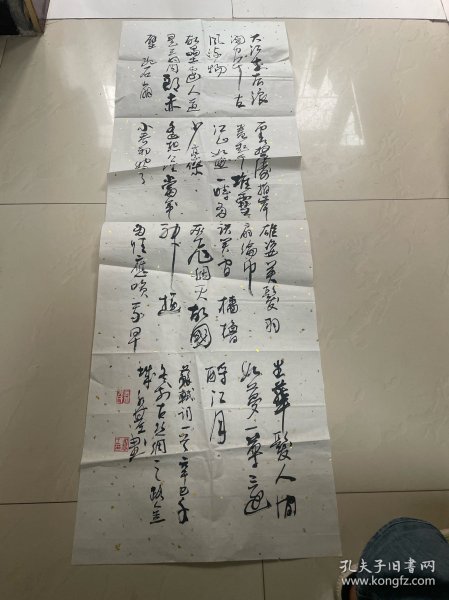 大江东去浪
淘尽千古
风流人物
故垒西边人道
是三国周郎赤
壁 乱石崩
云惊涛拍岸
卷起千堆雪
江山如画一时多
少豪杰
遥想公瑾当年
小乔初嫁了
雄姿英發羽
扇纶巾
谈笑间樯橹
灰飞烟灭故國
神游
多情应笑我早
生華髮人间
如梦一尊还
酹江月
蘇軾词一首辛巳年
冬于古丝绸之路金
城
孔夫子旧书网
www.kongfz.com